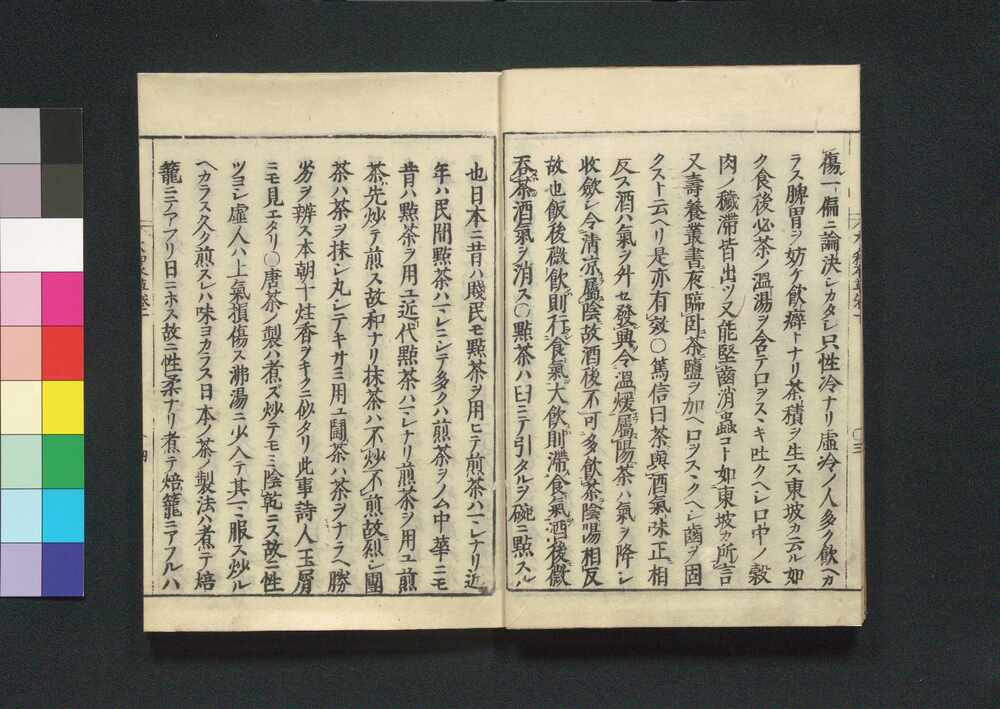 傷一偏ニ論決シカタシ只性冷ナリ虚冷ノ人多ク飲ヘカ
ラス脾胃ヲ妨ケ飲癖トナリ茶積ヲ生ス東坡カ云ル如
ク食後必茶ノ温湯ヲ含テ口ヲスヽキ吐クヘシ口中ノ穀
肉ノ穢滞皆出ツ又能堅齒消蟲コト如東坡カ所言
又壽養叢書夜臨臥茶鹽ヲ加ヘ口ヲスヽクヘシ齒ヲ固
クスト云ヘリ是亦有效〇篤信曰茶與酒氣味正相
反ス酒ハ氣ヲ外セ發興令温煖屬陽茶ハ氣ヲ降シ
收斂シ令清凉屬陰故酒後不可多飲茶陰陽相反
故也飯後微飲則行食氣大飲則滞食氣酒後微
呑茶酒氣ヲ消ス〇點茶ハ臼ニテ引タルヲ碗ニ點スル
也日本ニ昔ハ賤民モ點茶ヲ用ヒテ煎茶ハマレナリ近
年ハ民間點茶ハマレニシテ多クハ煎茶ヲノム中華ニモ
昔ハ點茶ヲ用ユ近代點茶ハマレナリ煎茶ヲ用ユ煎
茶先炒テ煎ス故和ナリ抹茶ハ不炒不煎故烈シ團
茶ハ茶ヲ抹シ丸シテキサミ用ユ鬪茶ハ茶ヲナラヘ勝
劣ヲ辨ス本朝十炷香ヲキクニ似タリ此事詩人玉屑
ニモ見エタリ〇唐茶ノ製ハ煮ズ炒テモミ陰乾ニス故ニ性
ツヨシ虚人ハ上氣損傷ス沸湯ニ少入テ其マヽ服ス炒ル
ヘカラス久ク煎スレハ味ヨカラス日本ノ茶ノ製法ハ煮テ焙
籠ニテアフリ日ニホス故ニ性柔ナリ煮テ焙籠ニアフルハ